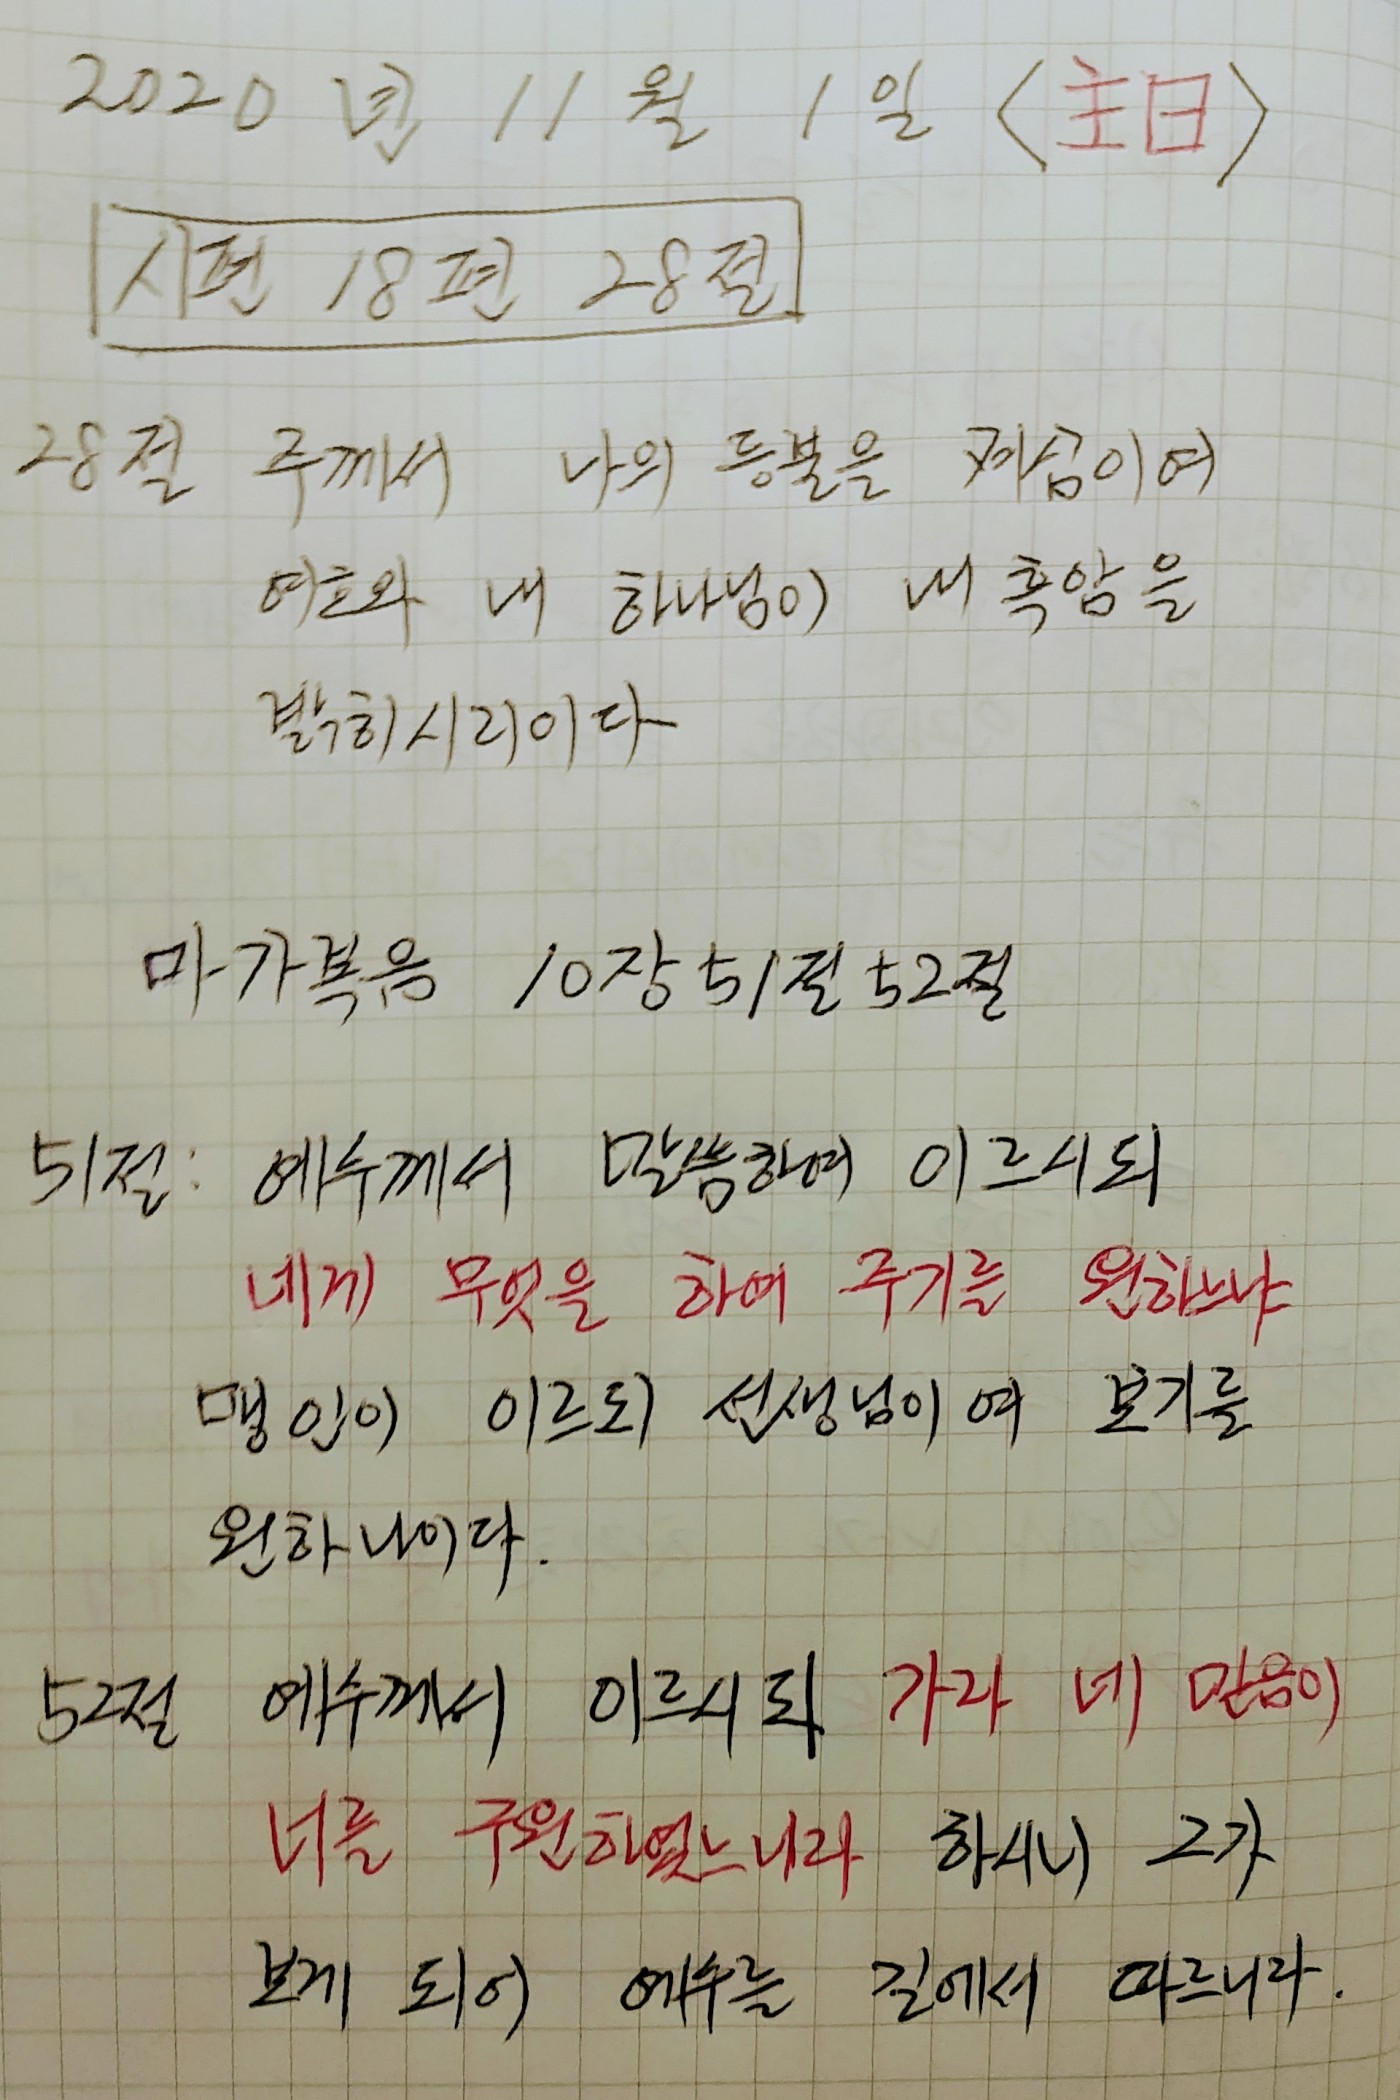 2020년 11월 1일 <主日>
시편 18편 28절
28절 주께서 나의 등불을 켜심이여
여호와 내 하나님이 내 흑암을
밝히시리이다
마가복음 10장 51절 52절
51절: 예수께서 말씀하여 이르시되
네게 무엇을 하여 주기를 원하느냐
맹인이 이르되 선생님이여 보기를
원하나이다.
52절 예수께서 이르시되 가라 네 믿음이
너를 구원하였느니라 하시니 그가
보게 되어 예수를 길에서 따르니라.